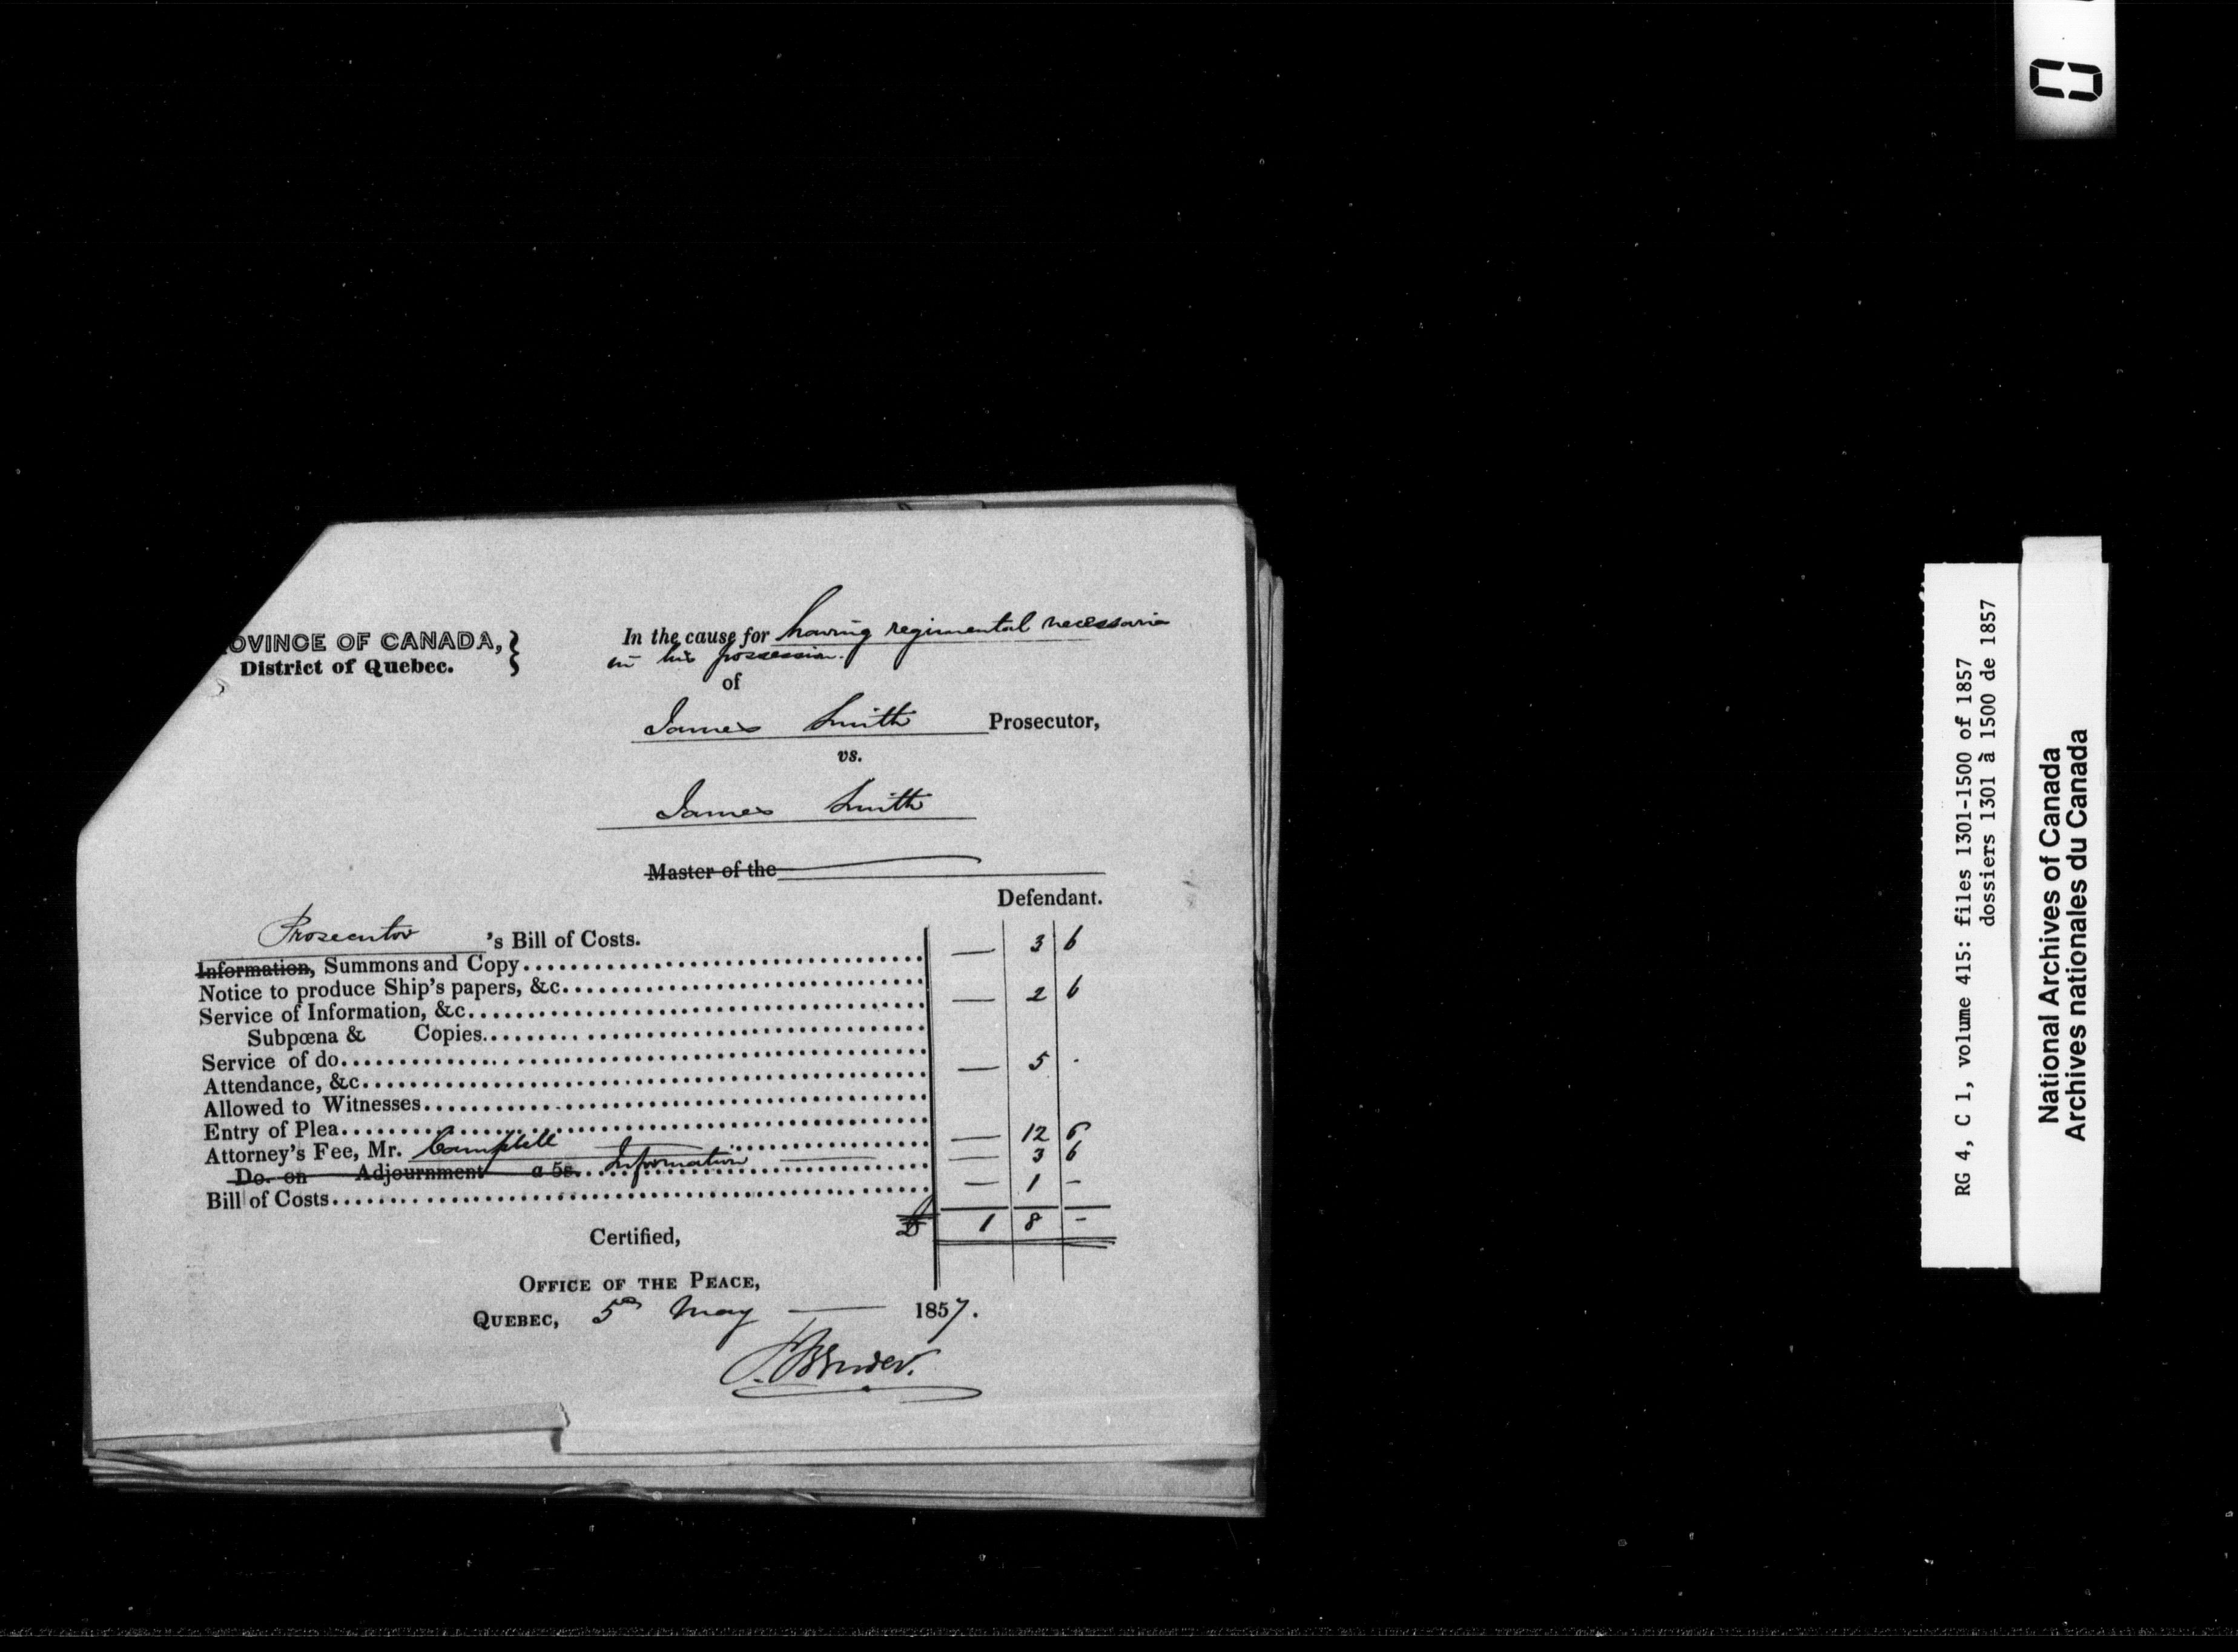 PROVINCE OF CANADA,
District of Quebec.
In the cause for having regimental necessaries
in his possession.
of
James Smith Prosecutor,
vs.
James Smith
Master of the
Defendant.
Prosecutor 's Bill of Costs.
Information, Summons and Copy — 3 6
Notice to produce Ship's papers, &c.
Service of Information, &c. — 2 6
Subpœna & Copies.
Service of do.
Attendance, &c. — 5 .
Allowed to Witnesses
Entry of Plea
Attorney's Fee, Mr. Campbell — 12 6
Do. on Adjournment a 5s. Information — 3 6
Bill of Costs — 1 –
£ 1 8 –
Certified,
OFFICE OF THE PEACE,
QUEBEC, 5th May — 1857.
RG 4, C 1, volume 415: files 1301-1500 of 1857
dossiers 1301 à 1500 de 1857
National Archives of Canada
Archives nationales du Canada